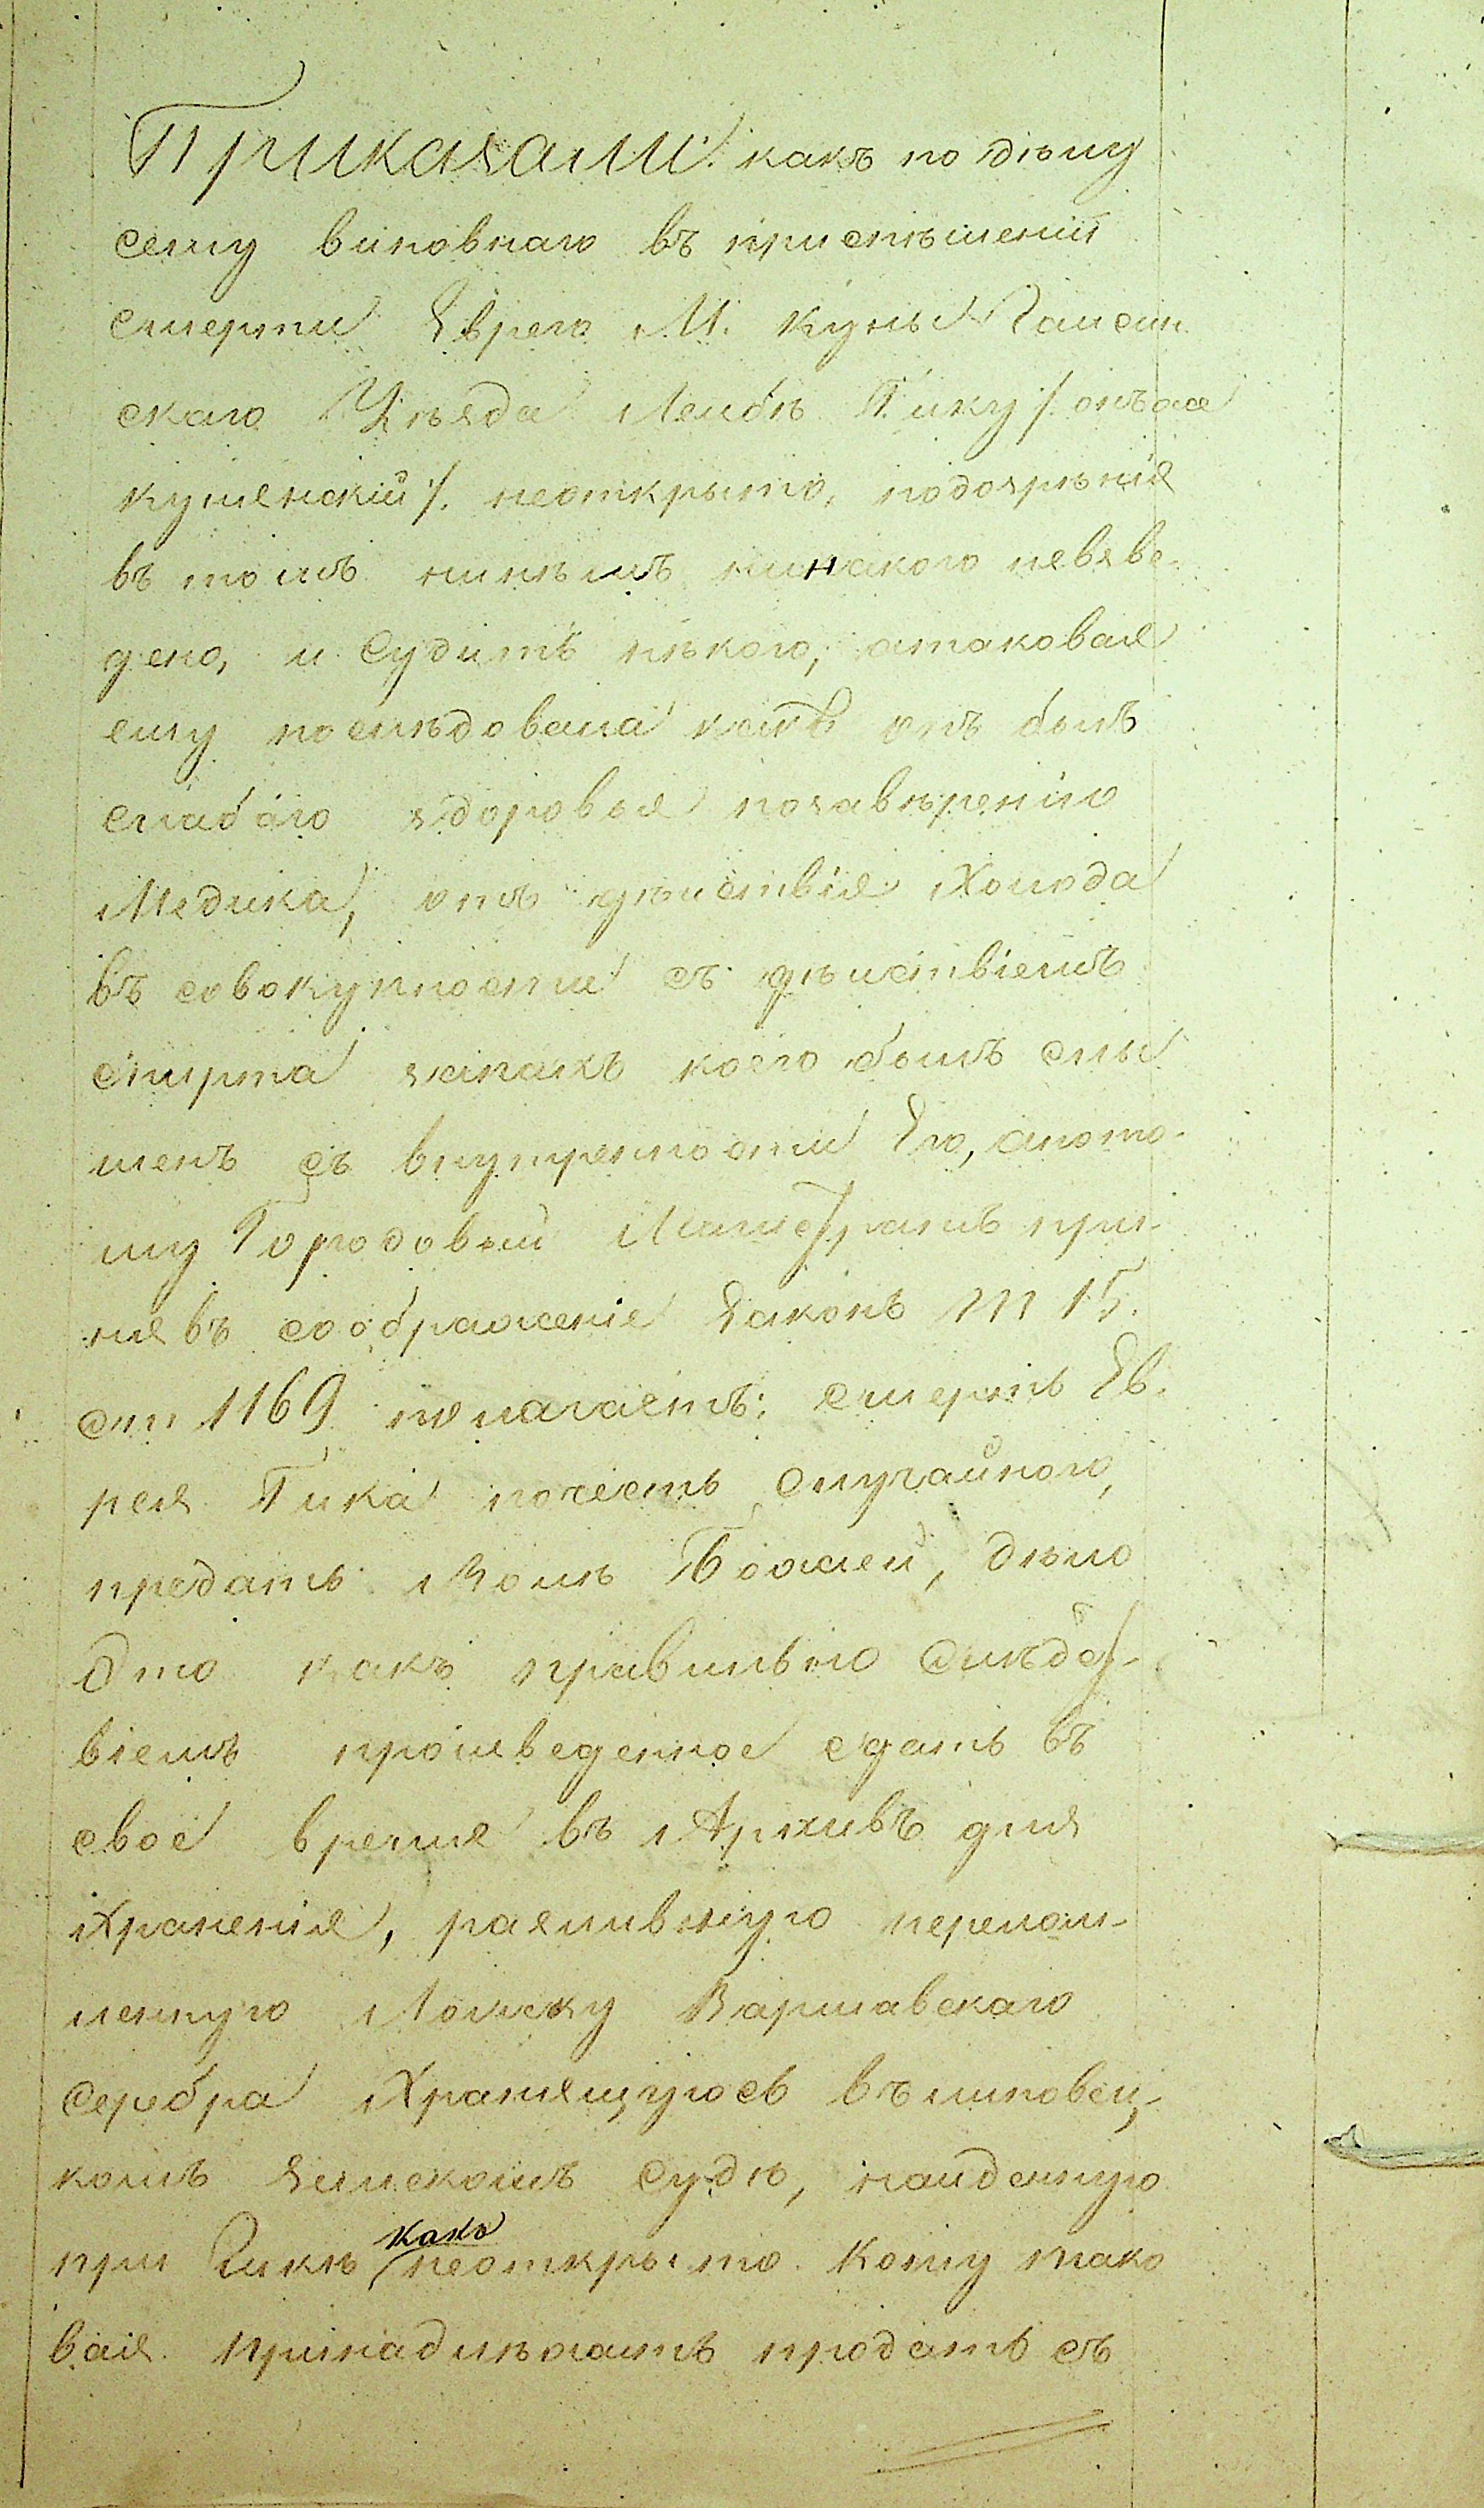 Приказали: какъ по дѣлу
сему виновнаго въ приспѣшеніи
смерти Еврею М. Куны Гайсин
скаго Уѣзда Лейбѣ Гику /: онъ же
кунянскій :/ неоткрыто, подозрѣнія
въ томъ нинѣмъ никакого невзве-
дено, и судить нѣкого, а таковая
ему последовала какъ онъ былъ
слабаго здоровья позавѣренію
Медика, отъ дѣйствія холода
въ совокупности съ дѣйствіемъ
спирта запахъ коего былъ слы
шенъ съ внутренности Его, апото-
му Городовый Магистратъ при-
нявъ соображеніе законъ т 15.
ст 1169 полагаетъ: смерть Ев-
рея Гика почесть случайною,
предать Волѣ Божіей, дѣло
это какъ правильно слѣдст-
віемъ произведенное сдать въ
свое время въ Архивъ для
храненія, разливную перелом-
ленную Ложку Варшавскаго
серебра хранящуюсь въ липовец-
комъ земскомъ судѣ, найденную
при Гикѣ какъ неоткрыто кому тако
вая принадлѣжатъ продать съ